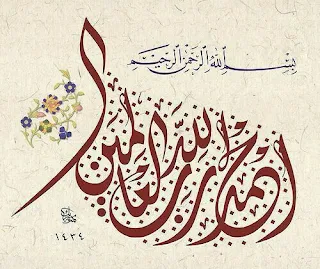 بِسْمِ اللهِ الرَّحْمٰنِ الرَّحِيْمِ
الحمد لله رب العالمين
١٤٣٤